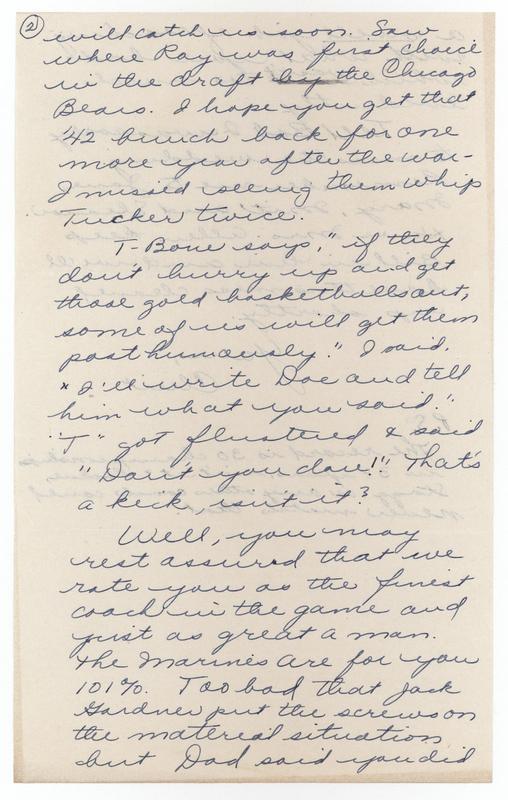 2
will catch us soon. Saw
where Ray was first choice
in the draft by the Chicago
Bears. I hope you get that
'42 bunch back for one
more year after the war -
I missed seeing them whip
Tucker twice.
T-Bone says, "if they
don't hurry up and get
those gold basketballs out,
some of us will get them
posthumously." I said,
"I'll write Doc and tell
him what you said."
"T" got flustered & said
"Don't you dare!" That's
a keck, isn't it?
Well, you may
rest assured that we
rate you as the finest
coach in the game and
just as great a man.
The Marines are for you
101%. Too bad that Jack
Gardner put the screws on
the material situation
but Dad said you did